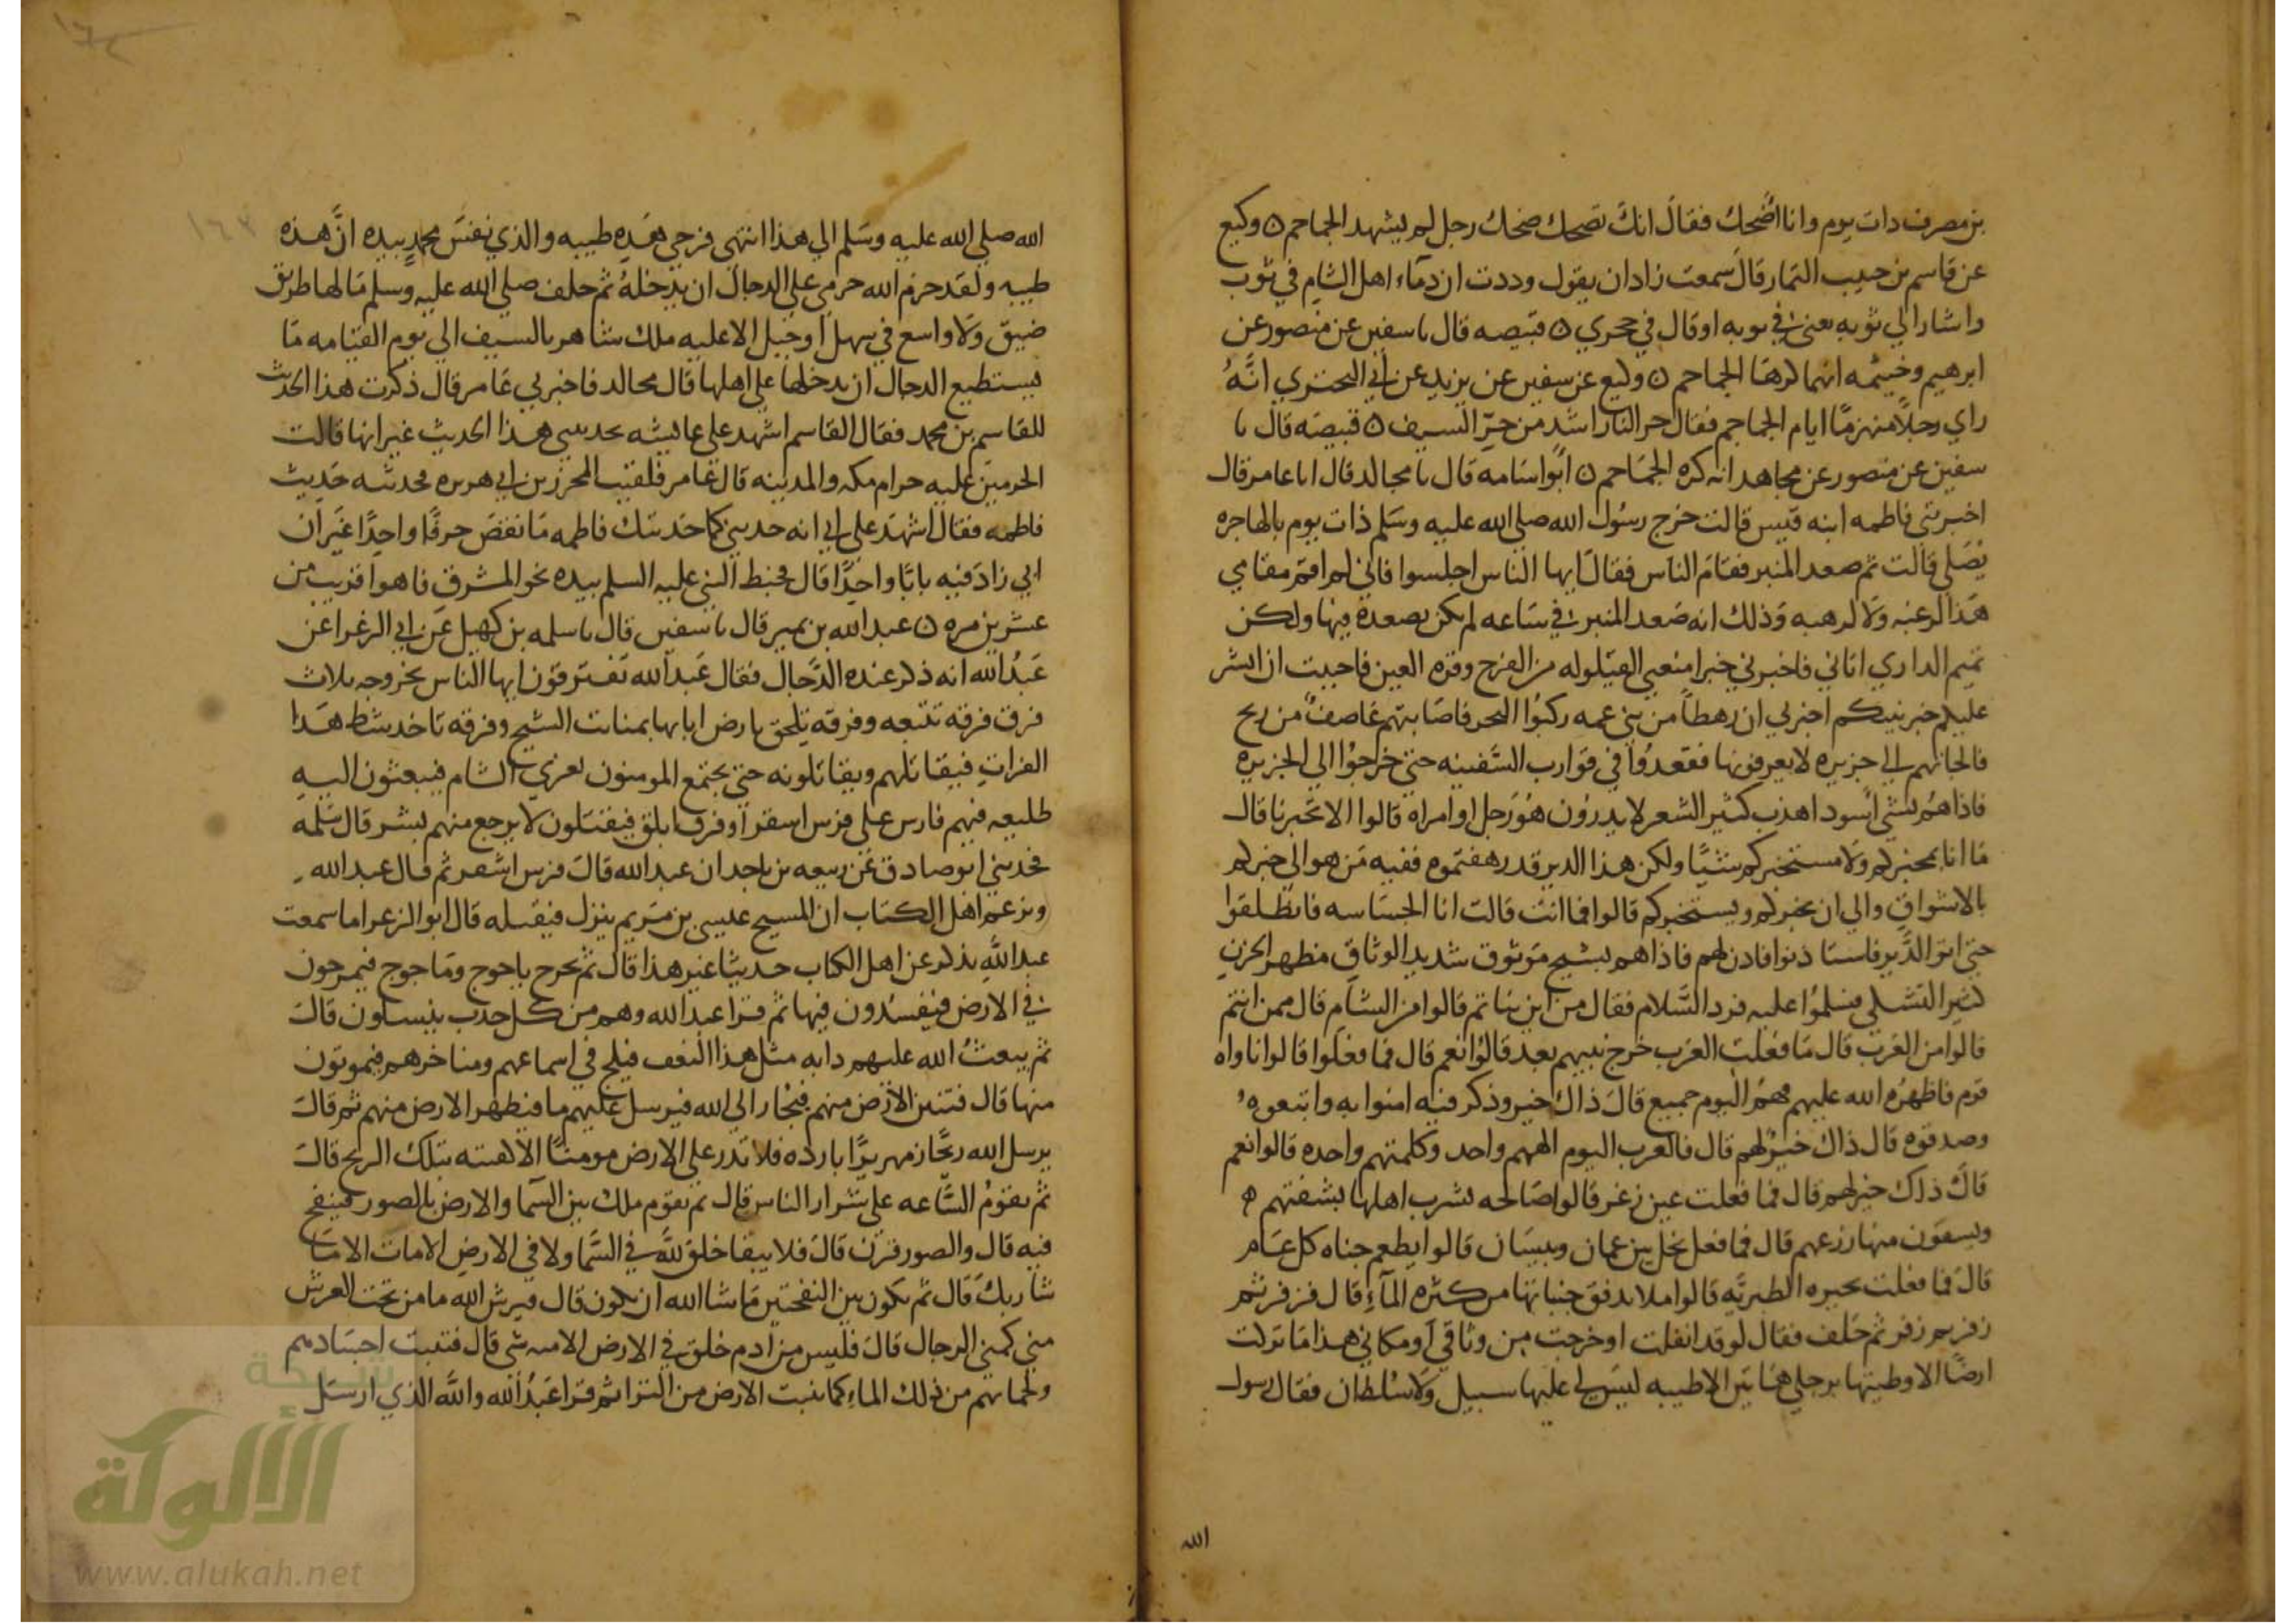 بن مصرف دات يوم وانا اضحك فقال انك تضحك ضحك رجل لم يشهد الجماجم ٥ وكيع
عن قاسم بن حبيب التمار قال سمعت زادان يقول وددت ان دماء اهل الشام في ثوب
واشار الي ثوبه يعني في ثوبه او قال في حجري ٥ قبيصه قال نا سفين عن منصور عن
ابرهيم وخيثمه انهما كرها الجماجم ٥ وكيع عن سفين عن يزيد عن ابي البختري انه
راي رجلا منهزما ايام الجماجم فقال حر النار اشد من حر السيف ٥ قبيصه قال نا
سفين عن منصور عن مجاهد انه كره الجماجم ٥ ابو اسامه قال نا مجالد قال انا عامر قال
اخبرتني فاطمه ابنه قيس قالت خرج رسول الله صلي الله عليه وسلم ذات يوم بالهاجره
يصلي قالت ثم صعد المنبر فقام الناس فقال ايها الناس اجلسوا فاني لم اقم مقامي
هذا لرغبه ولا لرهبه وذلك انه صعد المنبر في ساعه لم يكن يصعده فيها ولكن
تميم الداري اتاني فاخبرني خبرا منعني القيلوله من الفرح وقره العين فاحببت ان انشر
عليكم خبر نبيكم اخبرني ان رهطا من بني عمه ركبوا البحر فاصابتهم عاصف من ريح
فالجاتهم الي جزيره لا يعرفونها فقعدوا في قوارب السفينه حتي خرجوا الي الجزيره
فاذا هم بشي اسود اهدب كثير الشعر لا يدرون هو رجل او امراه قالوا الا تخبرنا قال
ما انا بمخبركم ولا مستخبركم شيا ولكن هذا الدير قد رهقتموه ففيه من هو الي خبركم
بالاشواق والي ان يخبركم ويستخبركم قالوا فما انت قالت انا الجساسه فانطلقوا
حتي اتوا الدير فاستاذنوا فاذن لهم فاذا هم بشيخ موثوق شديد الوثاق مظهر الحزن
كثير التشكي فسلموا عليه فرد السلام فقال من اين نباتم قالوا من الشام قال ممن انتم
قالوا من العرب قال ما فعلت العرب خرج نبيهم بعد قالوا نعم قال فما فعلوا قالوا ناواه
قوم فاظهره الله عليهم فهم اليوم جميع قال ذاك خير وذكر فيه امنوا به واتبعوه
وصدقوه قال ذاك خير لهم قال فالعرب اليوم الههم واحد وكلمتهم واحده قالوا نعم
قال ذلك خير لهم قال فما فعلت عين زغر قالوا صالحه يشرب اهلها بشفتهم
ويسقون منها زرعهم قال فما فعل نخل بين عمان وبيسان قالوا يطعم جناه كل عام
قال فما فعلت بحيره الطبريه قالوا ملا تدفق جنباتها من كثره الماء قال فزفر ثم
زفر ثم زفر ثم حلف فقال لو قد انفلت او خرجت من وثاقي او مكاني هذا ما تركت
ارضا الا وطيتها برجلي هاتين الا طيبه ليس لي عليها سبيل ولا سلطان فقال رسول
الله
الله صلي الله عليه وسلم الي هذا انتهي فرحي هذه طيبه والذي نفس محمد بيده ان هذه
طيبه ولقد حرم الله حرمي علي الدجال ان يدخله ثم حلف صلي الله عليه وسلم ما لها طريق
ضيق ولا واسع في سهل او جبل الا عليه ملك شاهر بالسيف الي يوم القيامه ما
يستطيع الدجال ان يدخلها علي اهلها قال مجالد فاخبرني عامر قال ذكرت هذا الحديث
للقاسم بن محمد فقال القاسم اشهد علي عايشه بحدثتني هذا الحديث غير انها قالت
الحرمين عليه حرام مكه والمدينه قال عامر فلقيت المحرر بن ابي هريره فحدثته حديث
فاطمه فقال اشهد علي ابي انه حدثني كما حدثتك فاطمه ما نقص حرفا واحدا غير ان
ابي زاد فيه بابا واحدا قال فخبط النبي عليه السلم بيده نحو المشرق فاهوا قريب من
عشرين مره ٥ عبد الله بن نمير قال نا سفين قال نا سلمه بن كهيل عن ابي الزعرا عن
عبد الله انه ذكر عنده الدجال فقال عبد الله تفترقون ايها الناس بخروجه بلاث
فرق فرقه تتبعه وفرقه تلحق بارض ابايها بمنابت الشيح وفرقه تاخد شط هذا
الفرات فيقاتلهم ويقاتلونه حتي يجتمع المومنون بغربي الشام فيبعثون اليه
طليعه فيهم فارس علي فرس اشقر او فرس ابلق فيقتتلون لا يرجع منهم بشر قال سلمه
فحدثني ابو صادق عن ربيعه بن ناجد ان عبد الله قال فرس اشقر ثم قال عبد الله
ويزعم اهل الكتاب ان المسيح عيسي بن مريم ينزل فيقتله قال ابو الزعرا ما سمعت
عبد الله يذكر عن اهل الكتاب حديثا غير هذا قال ثم يخرج ياجوج وماجوج فيمرجون
في الارض فيفسدون فيها ثم قرا عبد الله وهم من كل حدب ينسلون قال
ثم يبعث الله عليهم دابه مثل هذا النغف فيلج في اسماعهم ومناخرهم فيموتون
منها قال فتنتن الارض منهم فيجار الي الله فيرسل عليهم ما فيطهر الارض منهم ثم قال
يرسل الله ريحا زمهريرا بارده فلا تذر علي الارض مومنا الا كفته بتلك الريح قال
ثم تقوم الساعه علي شرار الناس قال ثم يقوم ملك بين السما والارض بالصور فينفخ
فيه قال والصور قرن قال فلا يبقا خلق لله في السما ولا في الارض الا مات الا ما
شا ربك قال ثم يكون بين النفختين ما شا الله ان يكون قال فيرش الله ما من تحت العرش
مني كمني الرجال قال فليس من ادم خلق في الارض الا منه شي قال فتنبت اجسادهم
ولحمانهم من ذلك الماء كما تنبت الارض من الثرا ثم قرا عبد الله والله الذي ارسل
شبكة
الألوكة
www.alukah.net